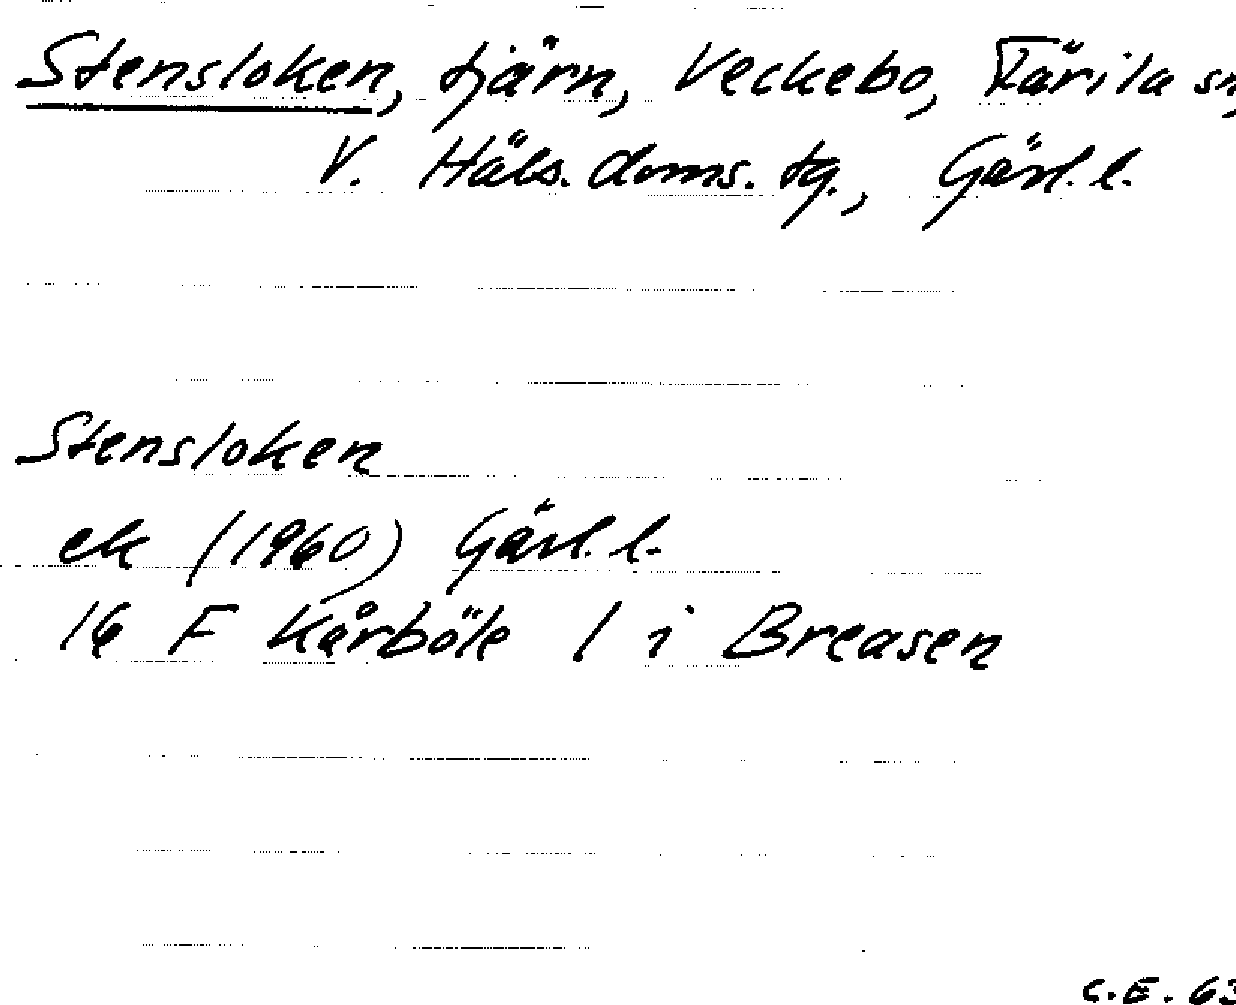 Stensloken, tjärn, Veckebo, Färila sn,
V. Häls. doms. tg., Gävl. l.
Stensloken
ek (1960) Gävl. l.
16 F Kårböle 1 i Breasen
C.E. 63